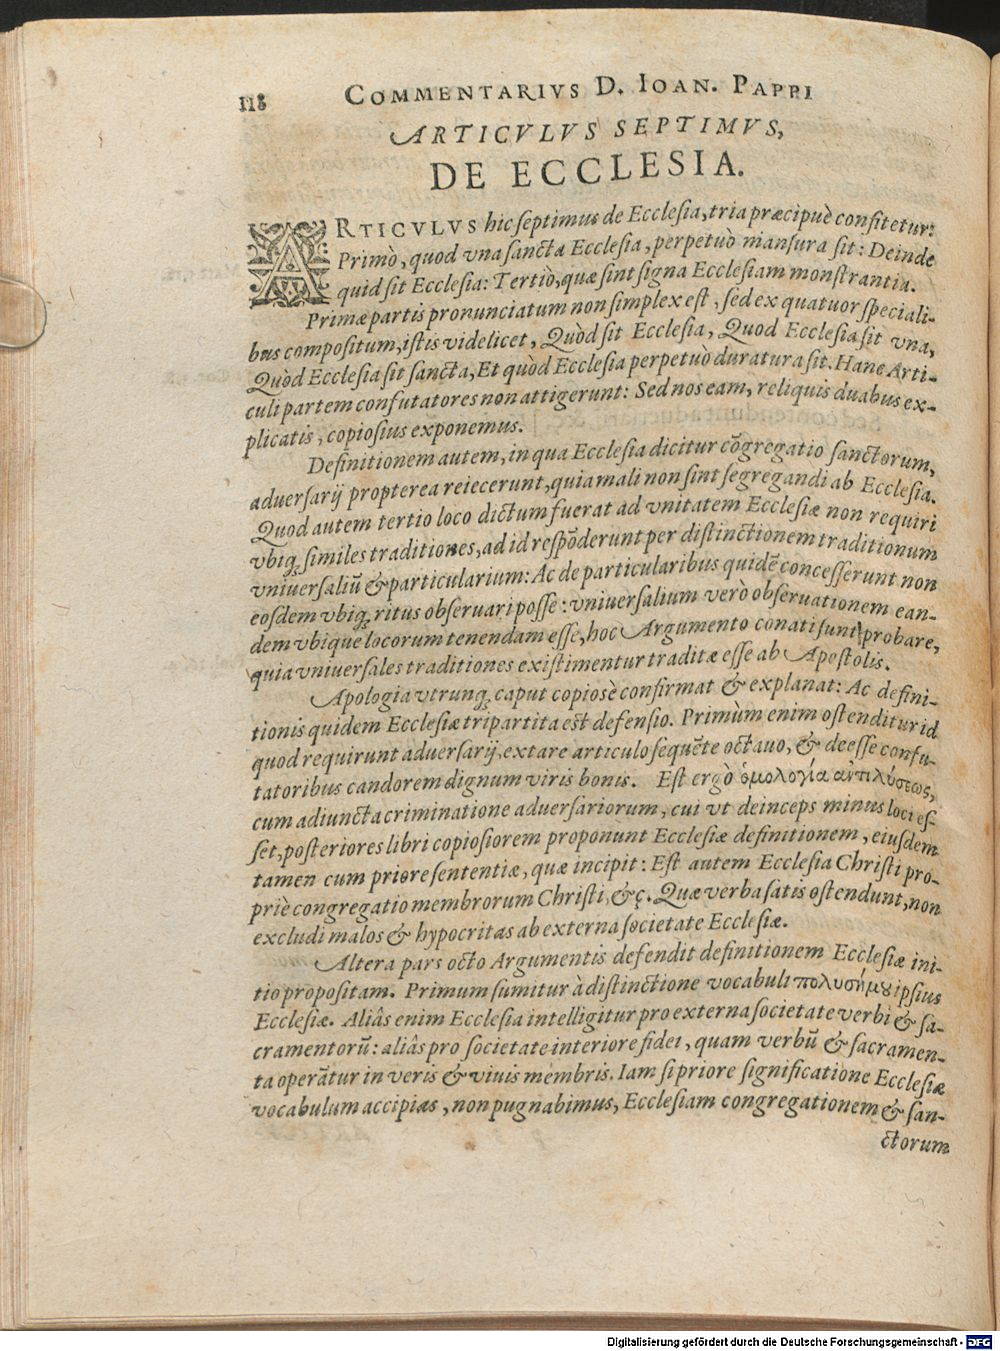 118 COMMENTARIVS D. IOAN. PAPPI
ARTICVLVS SEPTIMVS,
DE ECCLESIA.
ARTICVLVS hic septimus de Ecclesia, tria præcipuè confitetur:
Primò, quod vna sancta Ecclesia, perpetuò mansura sit: Deinde
quid sit Ecclesia: Tertiò, quæ sint signa Ecclesiam monstrantia.
Primæ partis pronunciatum non simplex est, sed ex quatuor speciali-
bus compositum, istis videlicet, Quòd sit Ecclesia, Quod Ecclesia sit vna,
Quòd Ecclesia sit sancta, Et quòd Ecclesia perpetuò duratura sit. Hanc Arti-
culi partem confutatores non attigerunt: Sed nos eam, reliquis duabus ex-
plicatis, copiosius exponemus.
Definitionem autem, in qua Ecclesia dicitur cōgregatio sanctorum,
aduersarij propterea reiecerunt, quia mali non sint segregandi ab Ecclesia.
Quod autem tertio loco dictum fuerat ad vnitatem Ecclesiæ non requiri
vbiq́ue similes traditiones, ad id respōderunt per distinctionem traditionum
vniuersaliū & particularium: Ac de particularibus quidē concesserunt non
eosdem vbiq́ue ritus obseruari posse: vniuersalium verò obseruationem ean-
dem vbique locorum tenendam esse, hoc Argumento conati sunt probare,
quia vniuersales traditiones existimentur traditæ esse ab Apostolis.
Apologia vtrunq́ue caput copiosè confirmat & explanat: Ac defini-
tionis quidem Ecclesiæ tripartita est defensio. Primùm enim ostenditur id
quod requirunt aduersarij, extare articulo sequēte octauo, & deesse confu-
tatoribus candorem dignum viris bonis. Est ergò ὁμολογία ἀντιλύσεως,
cum adiuncta criminatione aduersariorum, cui vt deinceps minus loci es-
set, posteriores libri copiosiorem proponunt Ecclesiæ definitionem, eiusdem
tamen cum priore sententiæ, quæ incipit: Est autem Ecclesia Christi pro-
priè congregatio membrorum Christi, &c. Quæ verba satis ostendunt, non
excludi malos & hypocritas ab externa societate Ecclesiæ.
Altera pars octo Argumentis defendit definitionem Ecclesiæ ini-
tio propositam. Primum sumitur à distinctione vocabuli πολυσήμȣ ipsius
Ecclesiæ. Aliâs enim Ecclesia intelligitur pro externa societate verbi & sa-
cramentorū: aliâs pro societate interiore fidei, quam verbū & sacramen-
ta operātur in veris & viuis membris. Iam si priore significatione Ecclesiæ
vocabulum accipias, non pugnabimus, Ecclesiam congregationem & san-
ctorum
Digitalisierung gefördert durch die Deutsche Forschungsgemeinschaft - DFG